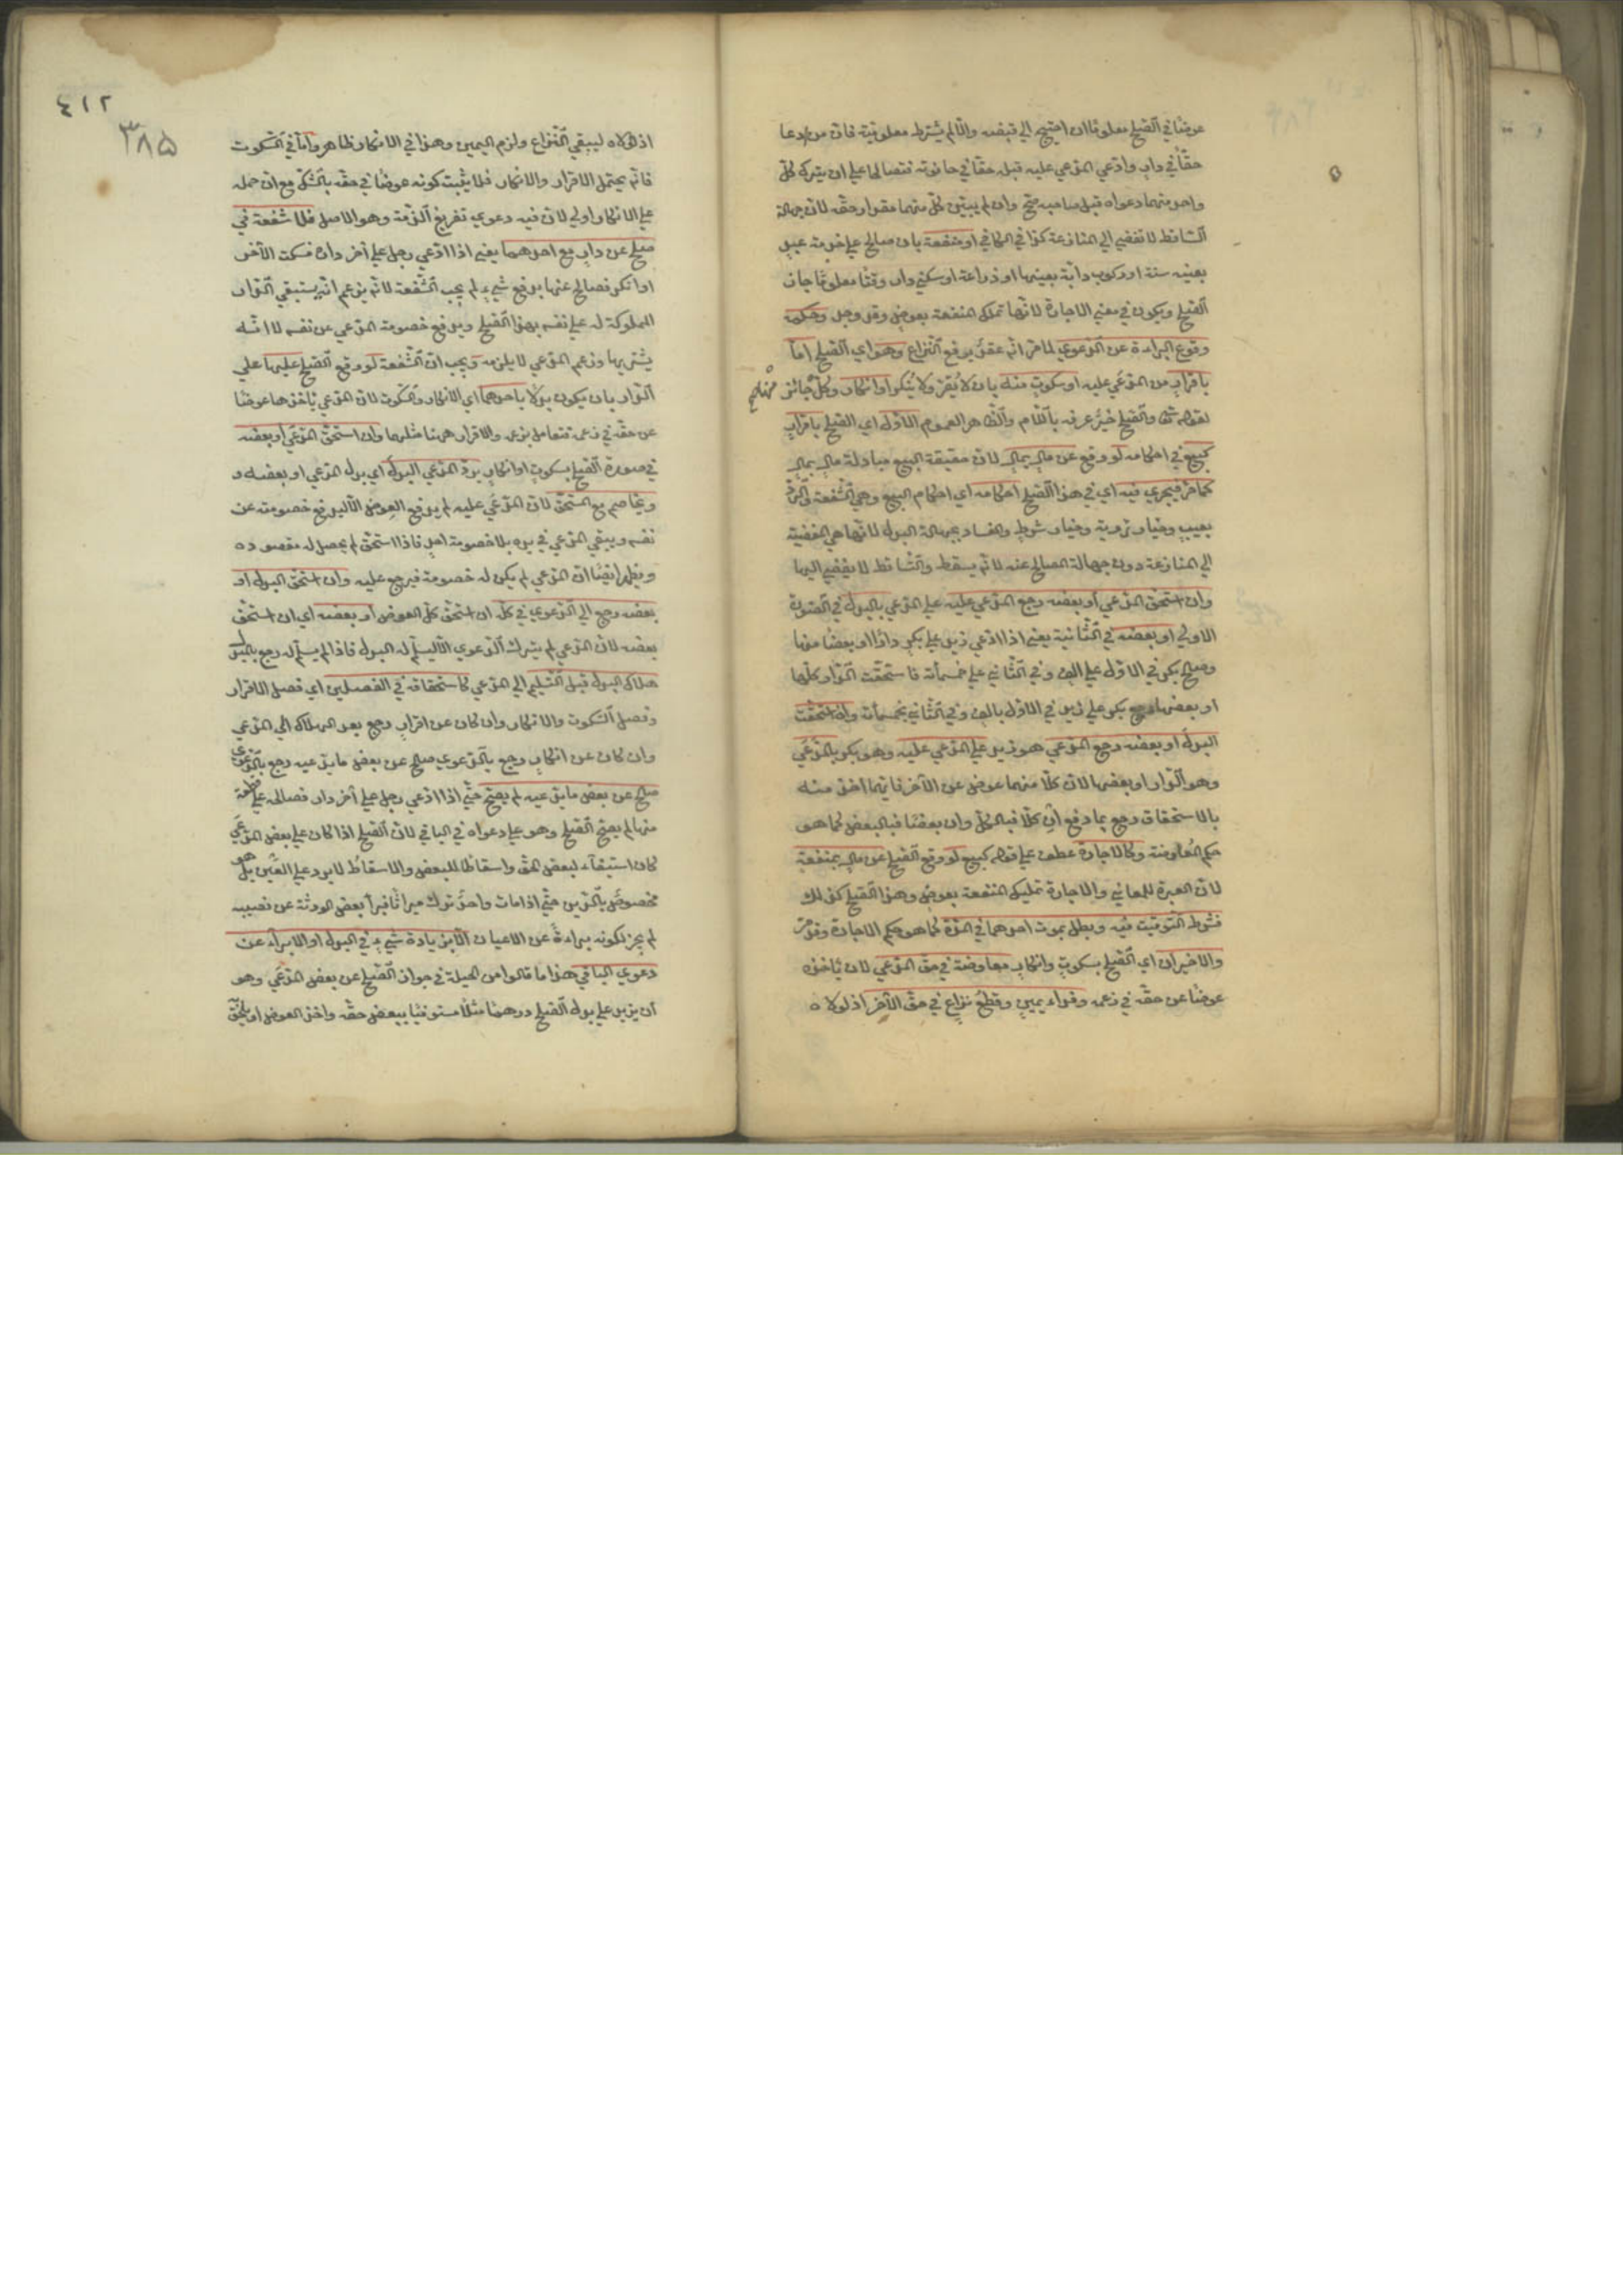 عوضا في الصلح معلوما ان احتيج الي قبضه والا لم يشترط معلوميته فان من ادعا
حقا في دار وادعي المدعي عليه قبله حقا في حانوته فتصالحا علي ان يترك كل
واحد منهما دعواه قبل صاحبه صح وان لم يبين كل منهما مقدار حقه لان جهالة
الساقط لا تفضي الي المنازعة كذا في الكافي او منفعة بان صالح علي خدمة عبد
بعينه سنة او ركوب دابة بعينها او زراعة او سكني دار وقتا معلوما جاز
الصلح ويكون في معني الاجارة لانها تملك المنفعة بعوض وقد وجد وحكمه
وقوع البراءة عن الدعوي لما مر انه عقد يرفع النزاع وهو اي الصلح اما
باقرار من المدعي عليه او سكوت منه بان لا يقر ولا ينكر او انكار وكل جائز
لقوله تعا والصلح خير عرفه باللام والظاهر العموم الاول اي الصلح باقرار
كبيع في احكامه لو وقع عن مال بمال لان حقيقة البيع مبادلة مال بمال
كما مر فيجري فيه اي في هذا الصلح احكامه اي احكام البيع وهي الشفعة والرد
بعيب وخيار رؤية وخيار شرط والفساد بجهالة البدل لانها هي المفضية
الي المنازعة دون جهالة المصالح عنه لانه يسقط والساقط لا يفضي اليها
وان استحق المدعي او بعضه رجع المدعي عليه علي المدعي بالبدل في الصورة
الاولي او بعضه في الثانية يعني اذا ادعي زيد علي بكر دارا او بعضا منها
وصالح بكر في الاول علي الف وفي الثاني علي خمسمأة فاستحقت الدار كلها
او بعضها رجع بكر علي زيد في الاول بالف وفي الثاني بخمسمأة وان استحقت
البدل او بعضه رجع المدعي هو زيد علي المدعي عليه وهو بكر بالمدعي
وهو الدار او بعضها لان كلا منهما عوض عن الآخر فايهما اخذ منه
بالاستحقاق رجع بما دفع ان كلا فبالكل وان بعضا فبالبعض كما هو
حكم المعاوضة وكالاجارة عطف علي قوله كبيع لو وقع الصلح عن مال بمنفعة
لان العبرة للمعاني والاجارة تمليك المنفعة بعوض وهذا الصلح كذلك
فشرط التوقيت فيه ويبطل بموت احدهما في المدة كما هو حكم الاجارة وقد مر
والاخيران اي الصلح بسكوت وانكار معاوضة في حق المدعي لان ياخذه
عوضا عن حقه في زعمه وفداء يمين وقطع نزاع في حق الآخر اذ لولاه
٤١٢
٣٨٥
اذ لولاه ليبقي النزاع ولزم اليمين وهذا في الانكار ظاهر واما في السكوت
فانه يحتمل الاقرار والانكار فلا يثبت كونه عوضا في حقه بالشك مع ان حمله
علي الانكار اولي لان فيه دعوي تفريغ الذمة وهو الاصل فلا شفعة في
صلح عن دار مع احدهما يعني اذا ادعي رجل علي آخر داره فسكت الآخر
او انكر فصالح عنها بدفع شيء لم يجب الشفعة لانه يزعم انه يستبقي الدار
المملوكة له علي نفسه بهذا الصلح ويدفع خصومة المدعي عن نفسه لا انه
يشتريها وزعم المدعي لا يلزمه ويجب ان الشفعة لو وقع الصلح عليها علي
الدار بان يكون بدلا باحدهما اي الانكار والسكوت لان المدعي ياخذها عوضا
عن حقه في زعمه فتعامل بزعمه والاقرار هنا مثلهما وان استحق المدعي او بعضه
في صورة الصلح بسكوت او انكار يرد المدعي البدل اي بدل المدعي او بعضه و
ويخاصم مع المستحق لان المدعي عليه لم يدفع العوض الا ليدفع خصومته عن
نفسه ويبقي المدعي في يده بلا خصومة احد فاذا استحق لم يحصل له مقصوده
ويظهر ايضا ان المدعي لم يكن له خصومة فيرجع عليه وان استحق البدل او
بعضه رجع الي الدعوي في كله ان استحق كل العوض او بعضه اي ان استحق
بعضه لان المدعي لم يترك الدعوي الا ليسلم له البدل فاذا لم يسلم له رجع بالمبدل
هلاك البدل قبل التسليم الي المدعي كاستحقاقه في الفصلين اي فصل الاقرار
وفصل السكوت والانكار وان كان عن اقرار رجع بعد الهلاك الي المدعي
وان كان عن انكار رجع بالدعوي صالح عن بعض ما يدعيه رجع بالدعوي
صالح عن بعض ما يدعيه لم يصح حتي اذا ادعي رجل علي آخر دار فصالحه علي قطعة
منها لم يصح الصلح وهو علي دعواه في الباقي لان الصلح اذا كان علي بعض المدعي
كان استيفاء لبعض الحق واسقاطا للبعض والاسقاط لا يرد علي العين بل هو
مخصوص بالدين حتي اذا مات واحد وترك ميراثا فبرأ بعض الورثة عن نصيبه
لم يجز لكونه براءة عن الاعيان الا بزيادة شيء في البدل او الابراء عن
دعوي الباقي هذا ما قالوا من الحيلة في جواز الصلح عن بعض المدعي وهو
ان يزيد علي بدل الصلح درهما مثلا مستوفيا ببعض حقه واخذ العوض او يلحق